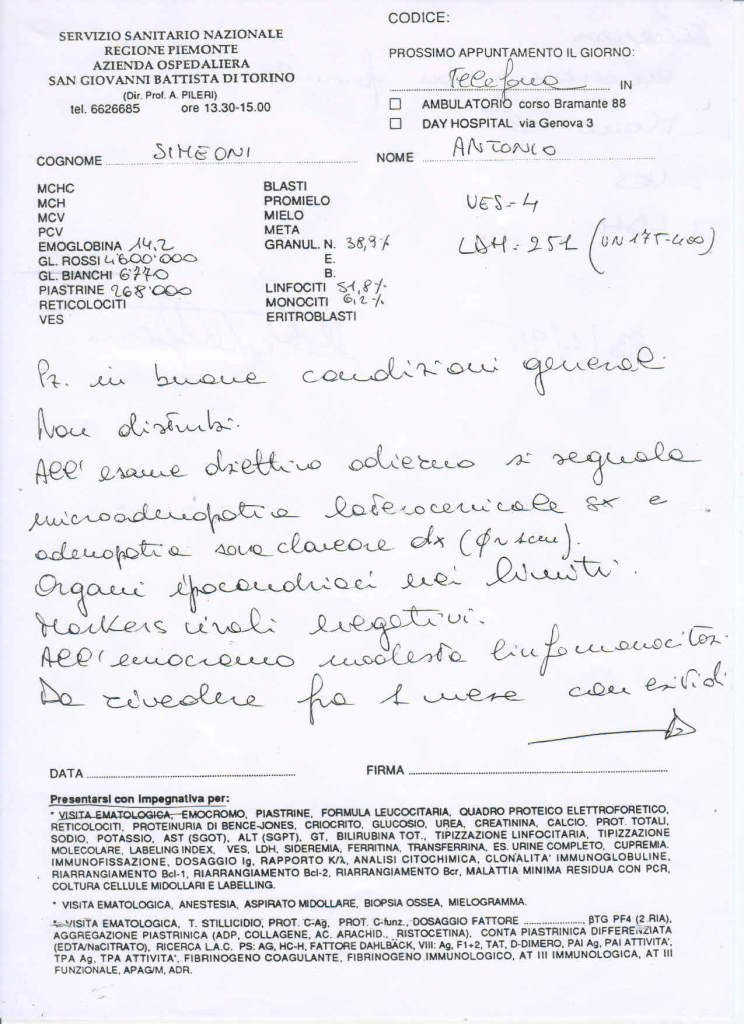 SERVIZIO SANITARIO NAZIONALE
REGIONE PIEMONTE
AZIENDA OSPEDALIERA
SAN GIOVANNI BATTISTA DI TORINO
(Dir. Prof. A. PILERI)
tel. 6626685 ore 13.30-15.00
CODICE:
PROSSIMO APPUNTAMENTO IL GIORNO:
Telefona IN
AMBULATORIO corso Bramante 88
DAY HOSPITAL via Genova 3
COGNOME SIMEONI NOME ANTONIO
MCHC
MCH
MCV
PCV
EMOGLOBINA 14,2
GL. ROSSI 4600'000
GL. BIANCHI 6770
PIASTRINE 268'000
RETICOLOCITI
VES
BLASTI
PROMIELO
MIELO
META
GRANUL. N. 38,9%
E.
B.
LINFOCITI 51,8%
MONOCITI 6,2%
ERITROBLASTI
VES = 4
LDH = 251 (VN 175-400)
Pz. in buone condizioni generali
Non disturbi.
All'esame obiettivo odierno si segnala
microadenopatia laterocervicale sx e
adenopatia sovraclaveare dx
Organi ipocondriaci nei limiti.
Markers virali negativi.
All'emocromo modesta linfomonocitosi.
Da rivedere fra 1 mese con esividi
DATA FIRMA
Presentarsi con impegnativa per:
* VISITA EMATOLOGICA, EMOCROMO, PIASTRINE, FORMULA LEUCOCITARIA, QUADRO PROTEICO ELETTROFORETICO,
RETICOLOCITI, PROTEINURIA DI BENCE-JONES, CRIOCRITO, GLUCOSIO, UREA, CREATININA, CALCIO, PROT. TOTALI,
SODIO, POTASSIO, AST (SGOT), ALT (SGPT), GT, BILIRUBINA TOT., TIPIZZAZIONE LINFOCITARIA, TIPIZZAZIONE
MOLECOLARE, LABELING INDEX, VES, LDH, SIDEREMIA, FERRITINA, TRANSFERRINA, ES. URINE COMPLETO, CUPREMIA.
IMMUNOFISSAZIONE, DOSAGGIO Ig, RAPPORTO K/λ, ANALISI CITOCHIMICA, CLONALITA' IMMUNOGLOBULINE,
RIARRANGIAMENTO Bcl-1, RIARRANGIAMENTO Bcl-2, RIARRANGIAMENTO Bcr, MALATTIA MINIMA RESIDUA CON PCR,
COLTURA CELLULE MIDOLLARI E LABELLING.
* VISITA EMATOLOGICA, ANESTESIA, ASPIRATO MIDOLLARE, BIOPSIA OSSEA, MIELOGRAMMA.
* VISITA EMATOLOGICA, T. STILLICIDIO, PROT. C-Ag, PROT. C-funz., DOSAGGIO FATTORE ..................., βTG PF4 (2 RIA),
AGGREGAZIONE PIASTRINICA (ADP, COLLAGENE, AC. ARACHID., RISTOCETINA). CONTA PIASTRINICA DIFFERENZIATA
(EDTA/NaCITRATO), RICERCA L.A.C. PS: AG, HC-H, FATTORE DAHLBÄCK, VIII: Ag, F1+2, TAT, D-DIMERO, PAI Ag, PAI ATTIVITA',
TPA Ag, TPA ATTIVITA', FIBRINOGENO COAGULANTE, FIBRINOGENO IMMUNOLOGICO, AT III IMMUNOLOGICA, AT III
FUNZIONALE, APAG/M, ADR.